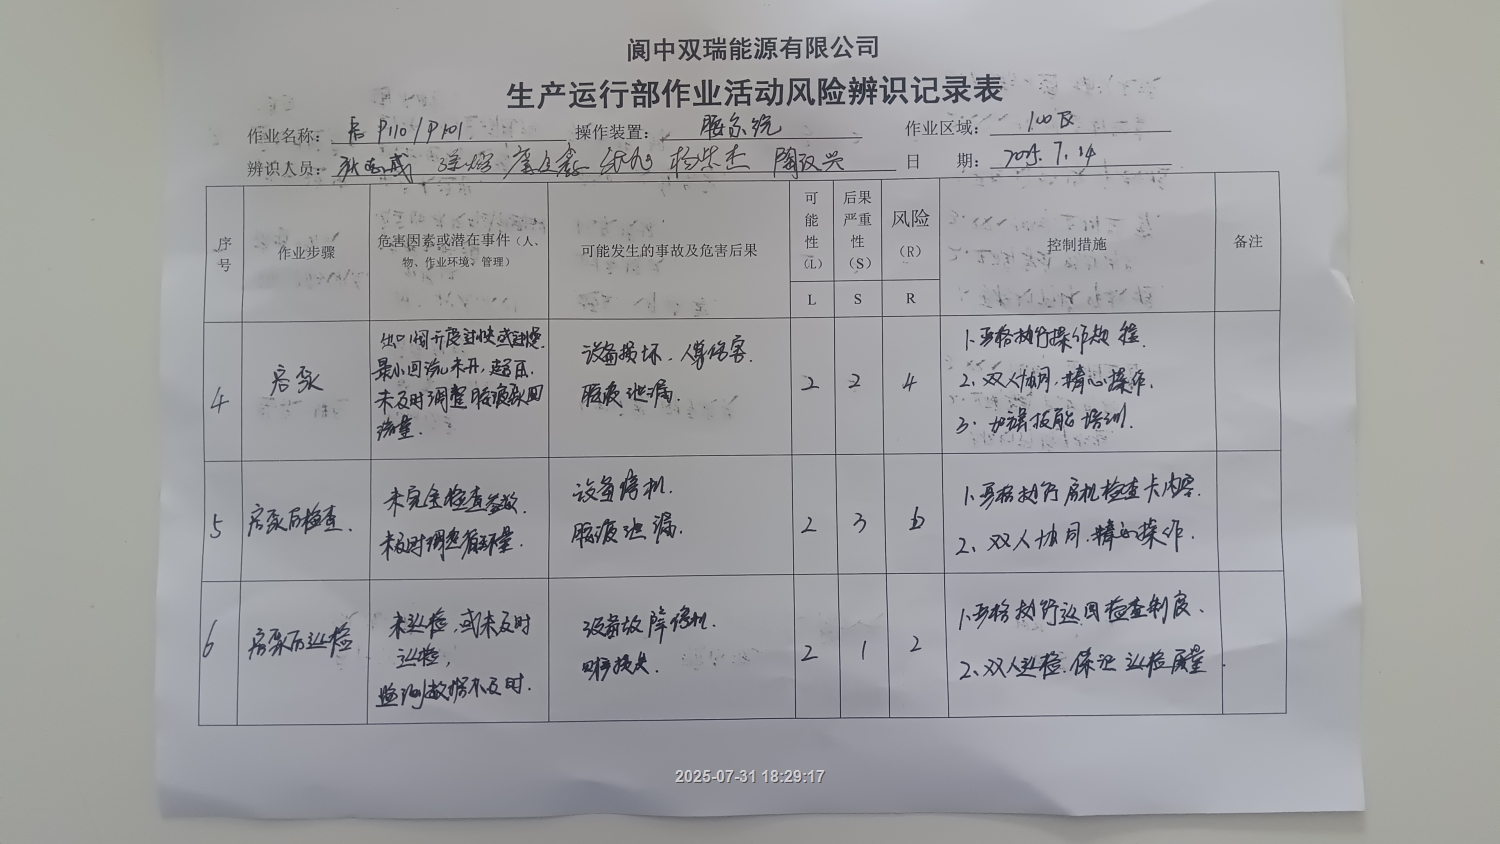 阆中双瑞能源有限公司
生产运行部作业活动风险辨识记录表
作业名称: 启 P110/P101 操作装置: 胺系统 作业区域: 100区
辨识人员: 杨荣杰 陶汉兴 日 期: 2025.7.14
序号 作业步骤 危害因素或潜在事件(人、物、作业环境、管理) 可能发生的事故及危害后果 可能性(L) 后果严重性(S) 风险(R) 控制措施 备注
L S R
4 启泵
出口阀开度过快或过慢.
最小回流未开,超压.
未及时调整胺液泵回
流量.
设备损坏.人身伤害.
胺液泄漏.
2 2 4
1.严格执行操作规程.
2.双人协同.精心操作.
3.加强技能培训.
5 启泵后检查.
未完全检查参数.
未及时调整循环量.
设备停机.
胺液泄漏.
2 3 6
1.严格执行启机检查卡内容.
2.双人协同.精心操作.
6 启泵后巡检
未巡检,或未及时
巡检,
监测数据不及时.
设备故障停机.
财产损失.
2 1 2
1.严格执行巡回检查制度.
2.双人巡检.保证巡检质量.
2025-07-31 18:29:17